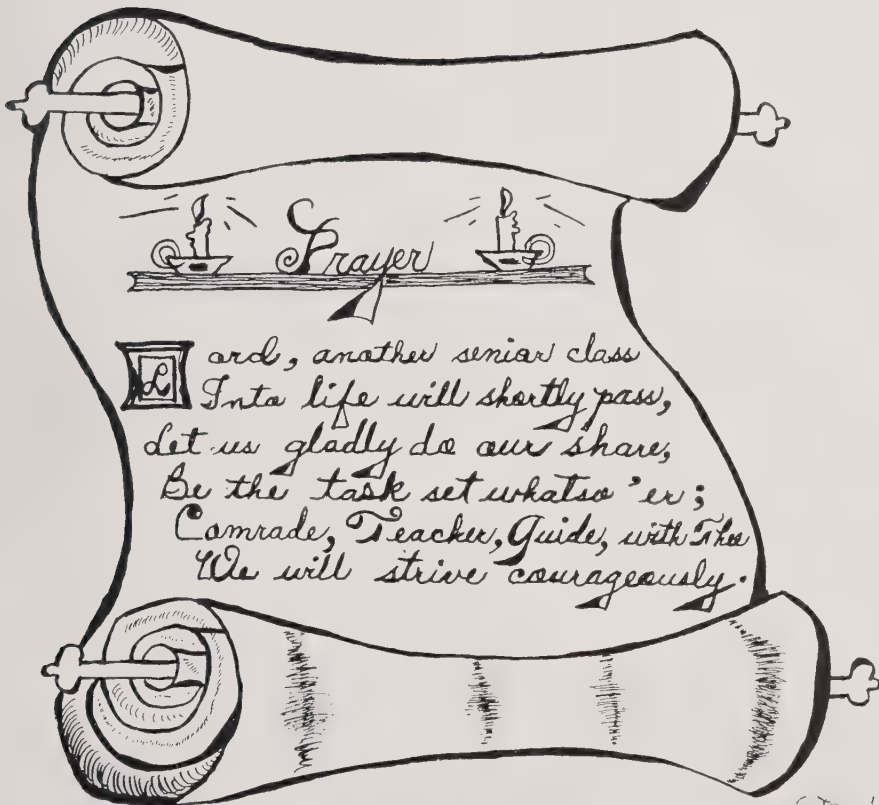 Prayer
Lord, another senior class
Into life will shortly pass,
Let us gladly do our share,
Be the task set whatso'er;
Comrade, Teacher, Guide, with Thee
We will strive courageously.